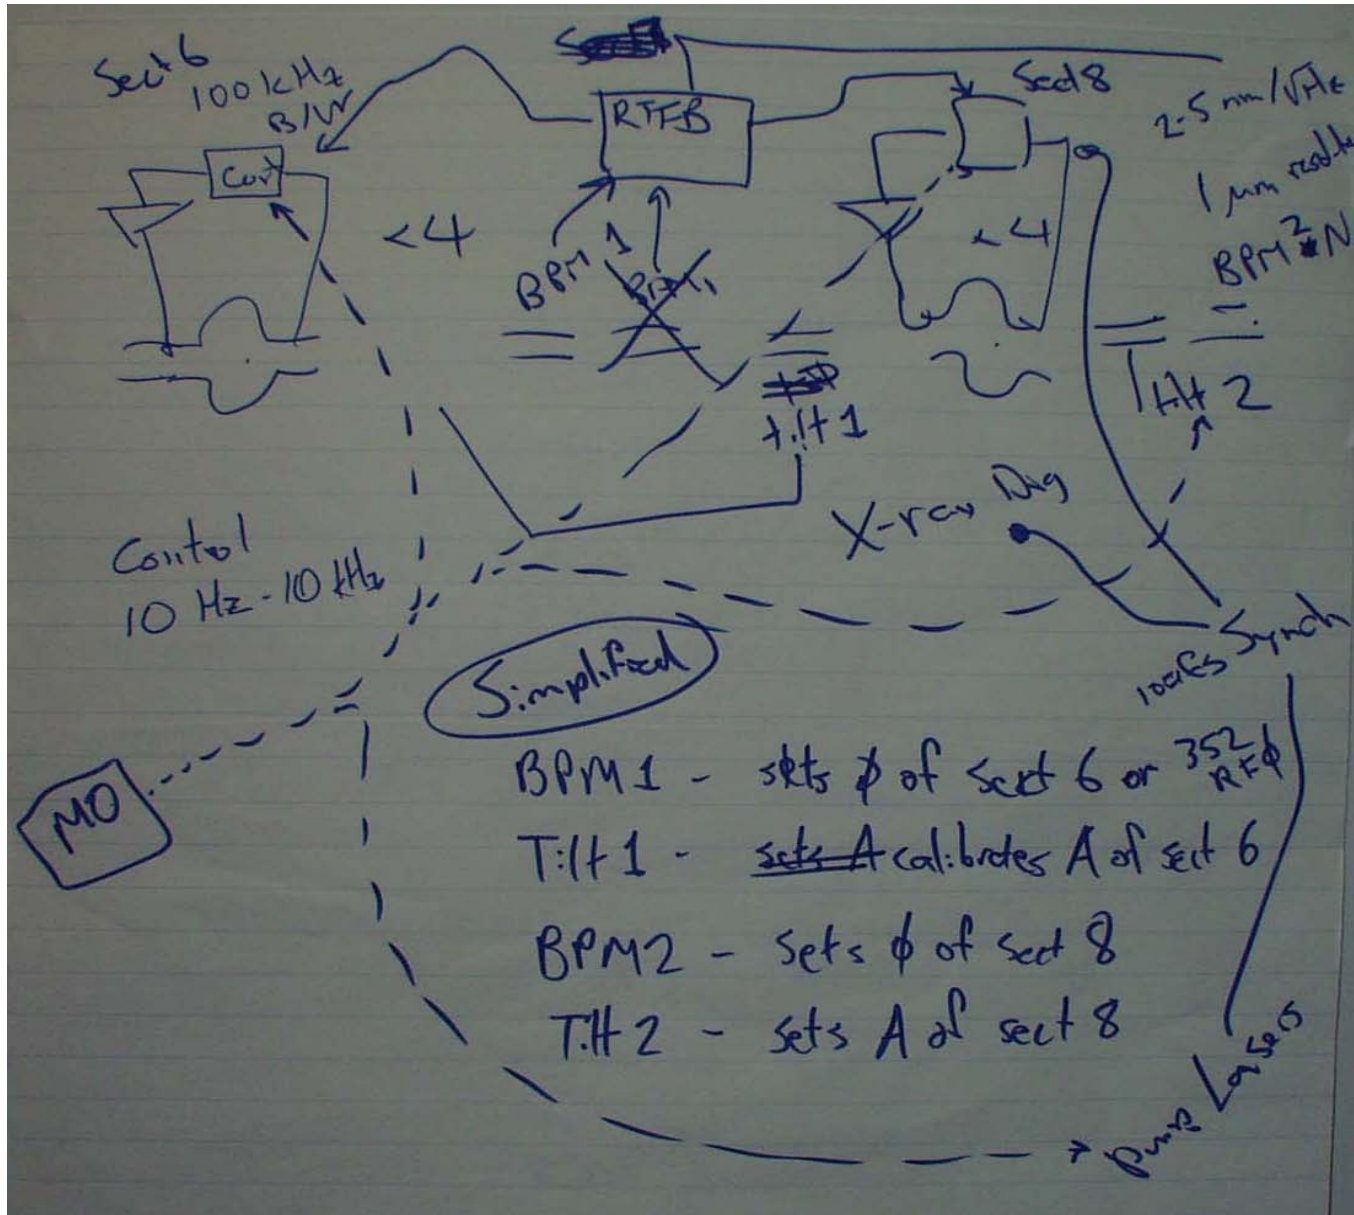 Sect 6
100 kHz
B/W
RTFB
Sect 8
2-5 nm/√Hz
1 μm
BPM 2 * N
<4
<4
BPM 1
tilt 1
tilt 2
X-ray Diag
Control
10 Hz - 10 kHz
Synch
Simplified
MO
BPM1 - sets ϕ of sect 6 or 352 RF ϕ
Tilt 1 - sets A calibrates A of sect 6
BPM2 - sets ϕ of sect 8
Tilt 2 - sets A of sect 8
Pump Lasers